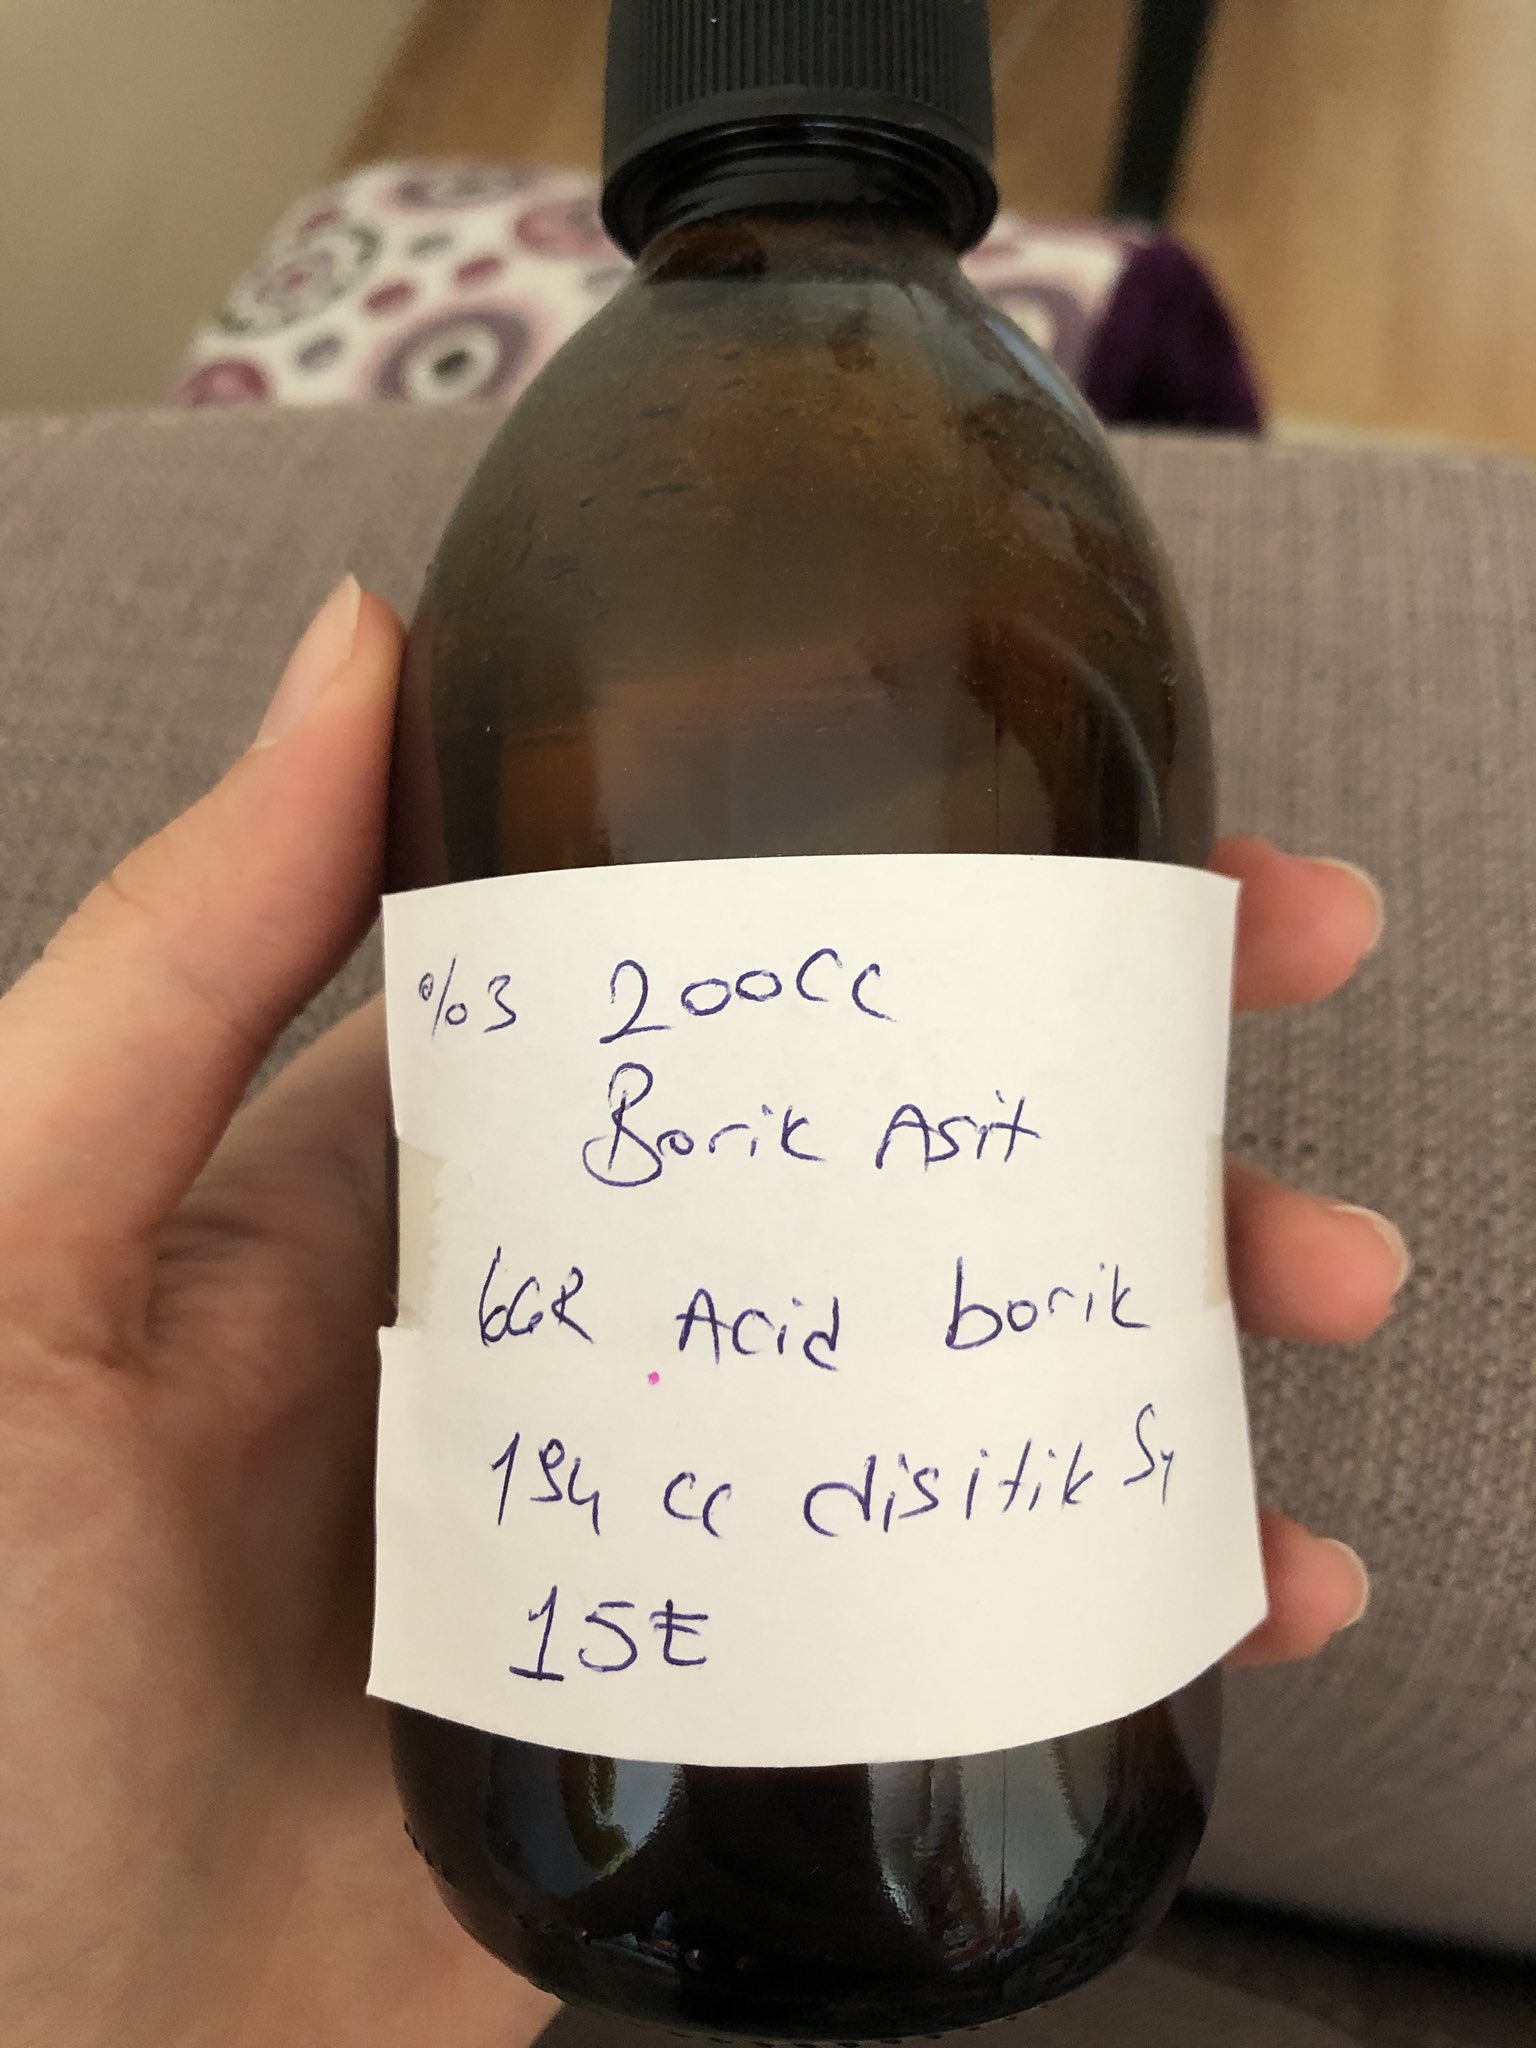 %3 200cc
Borik Asit
6GR Acid borik
194 cc disitik Sy
15₺